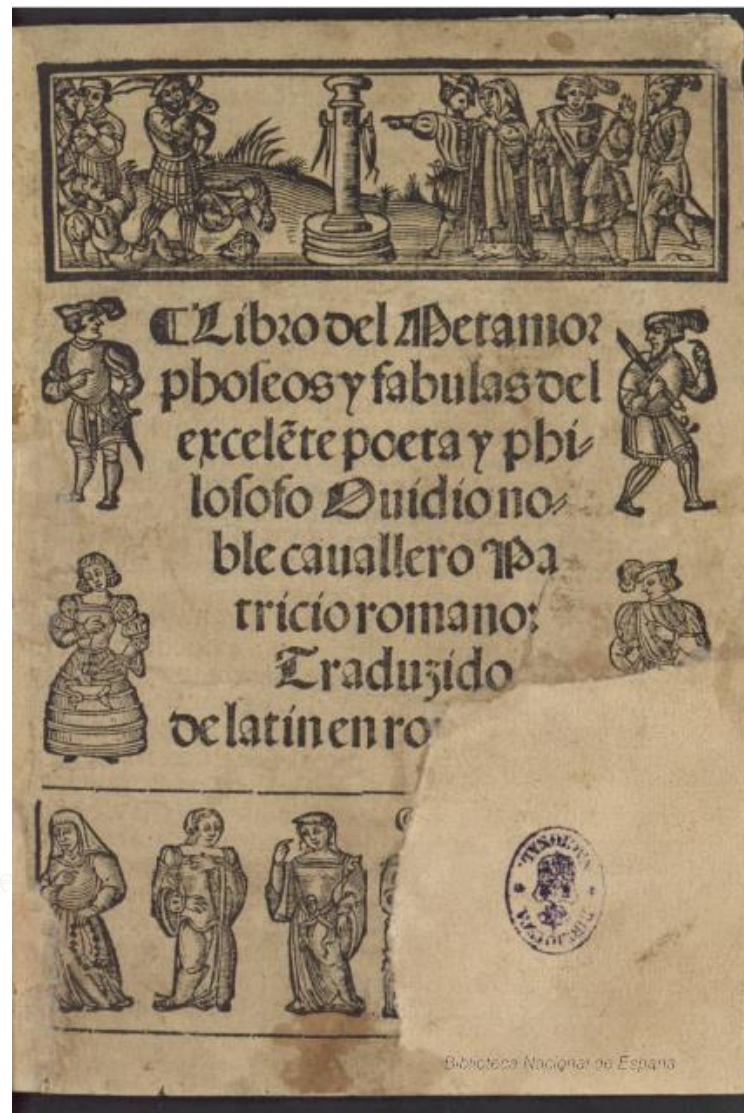 ¶Libro del Metamor
phoseos y fabulas del
excelẽte poeta y phi-
losofo Ouidio no-
ble cauallero Pa
tricio romano:
Traduzido
de latin en ro
BIBLIOTECA NACIONAL
Biblioteca Nacional de España